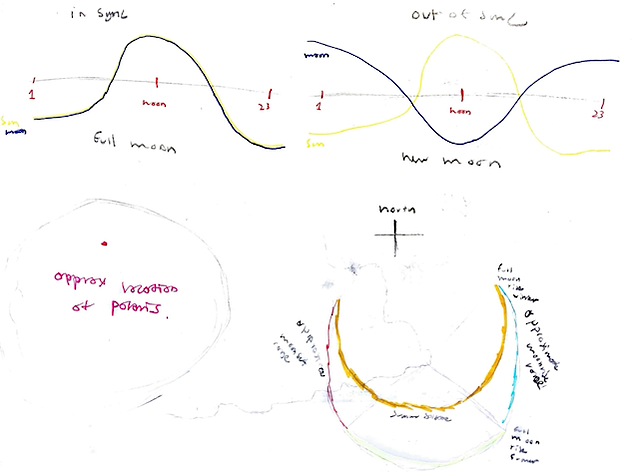 in sync
out of sync
moon
1
noon
23
Sun
moon
full moon
1
noon
23
Sun
new moon
north
approx location
of polaris.
full
moon
rise
winter
approximate
moonrise
range
full
moon
rise